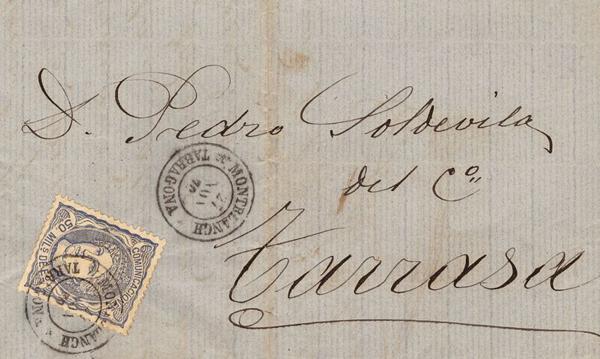 D. Pedro Soldevila
del Co.
Tarrasa
MONTBLANCH
TARRAGONA
COMUNICACIONES
50 MILS DE E